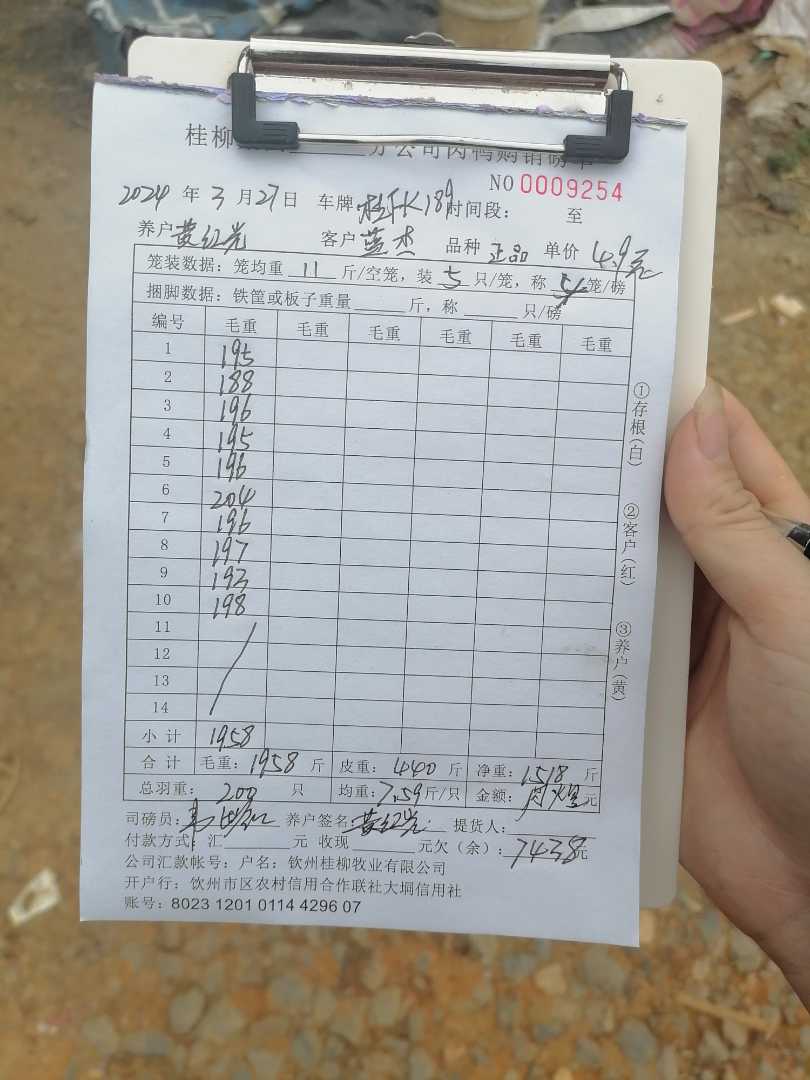 桂柳 分公司肉鸭购销磅单
NO 0009254
2024 年 3 月 27 日 车牌 桂 K189 时间段： 至
养户 黄红光 客户 蓝杰 品种 正品 单价 4.9元
笼装数据：笼均重 11 斤/空笼，装 5 只/笼，称 4 笼/磅
捆脚数据：铁筐或板子重量 斤，称 只/磅
编号 毛重 毛重 毛重 毛重 毛重 毛重
1 195
2 188
3 196
4 195
5 196
6 204
7 196
8 197
9 193
10 198
11
12
13
14
小计 1958
合计 毛重：1958 斤 皮重：440 斤 净重：1518 斤
总羽重： 200 只 均重：7.59斤/只 金额： 元
司磅员： 养户签名：黄红光 提货人：
付款方式：汇 元 收现 元欠（余）：7438元
公司汇款帐号：户名：钦州桂柳牧业有限公司
开户行：钦州市区农村信用合作联社大垌信用社
账号：8023 1201 0114 4296 07
①存根(白)
②客户(红)
③养户(黄)